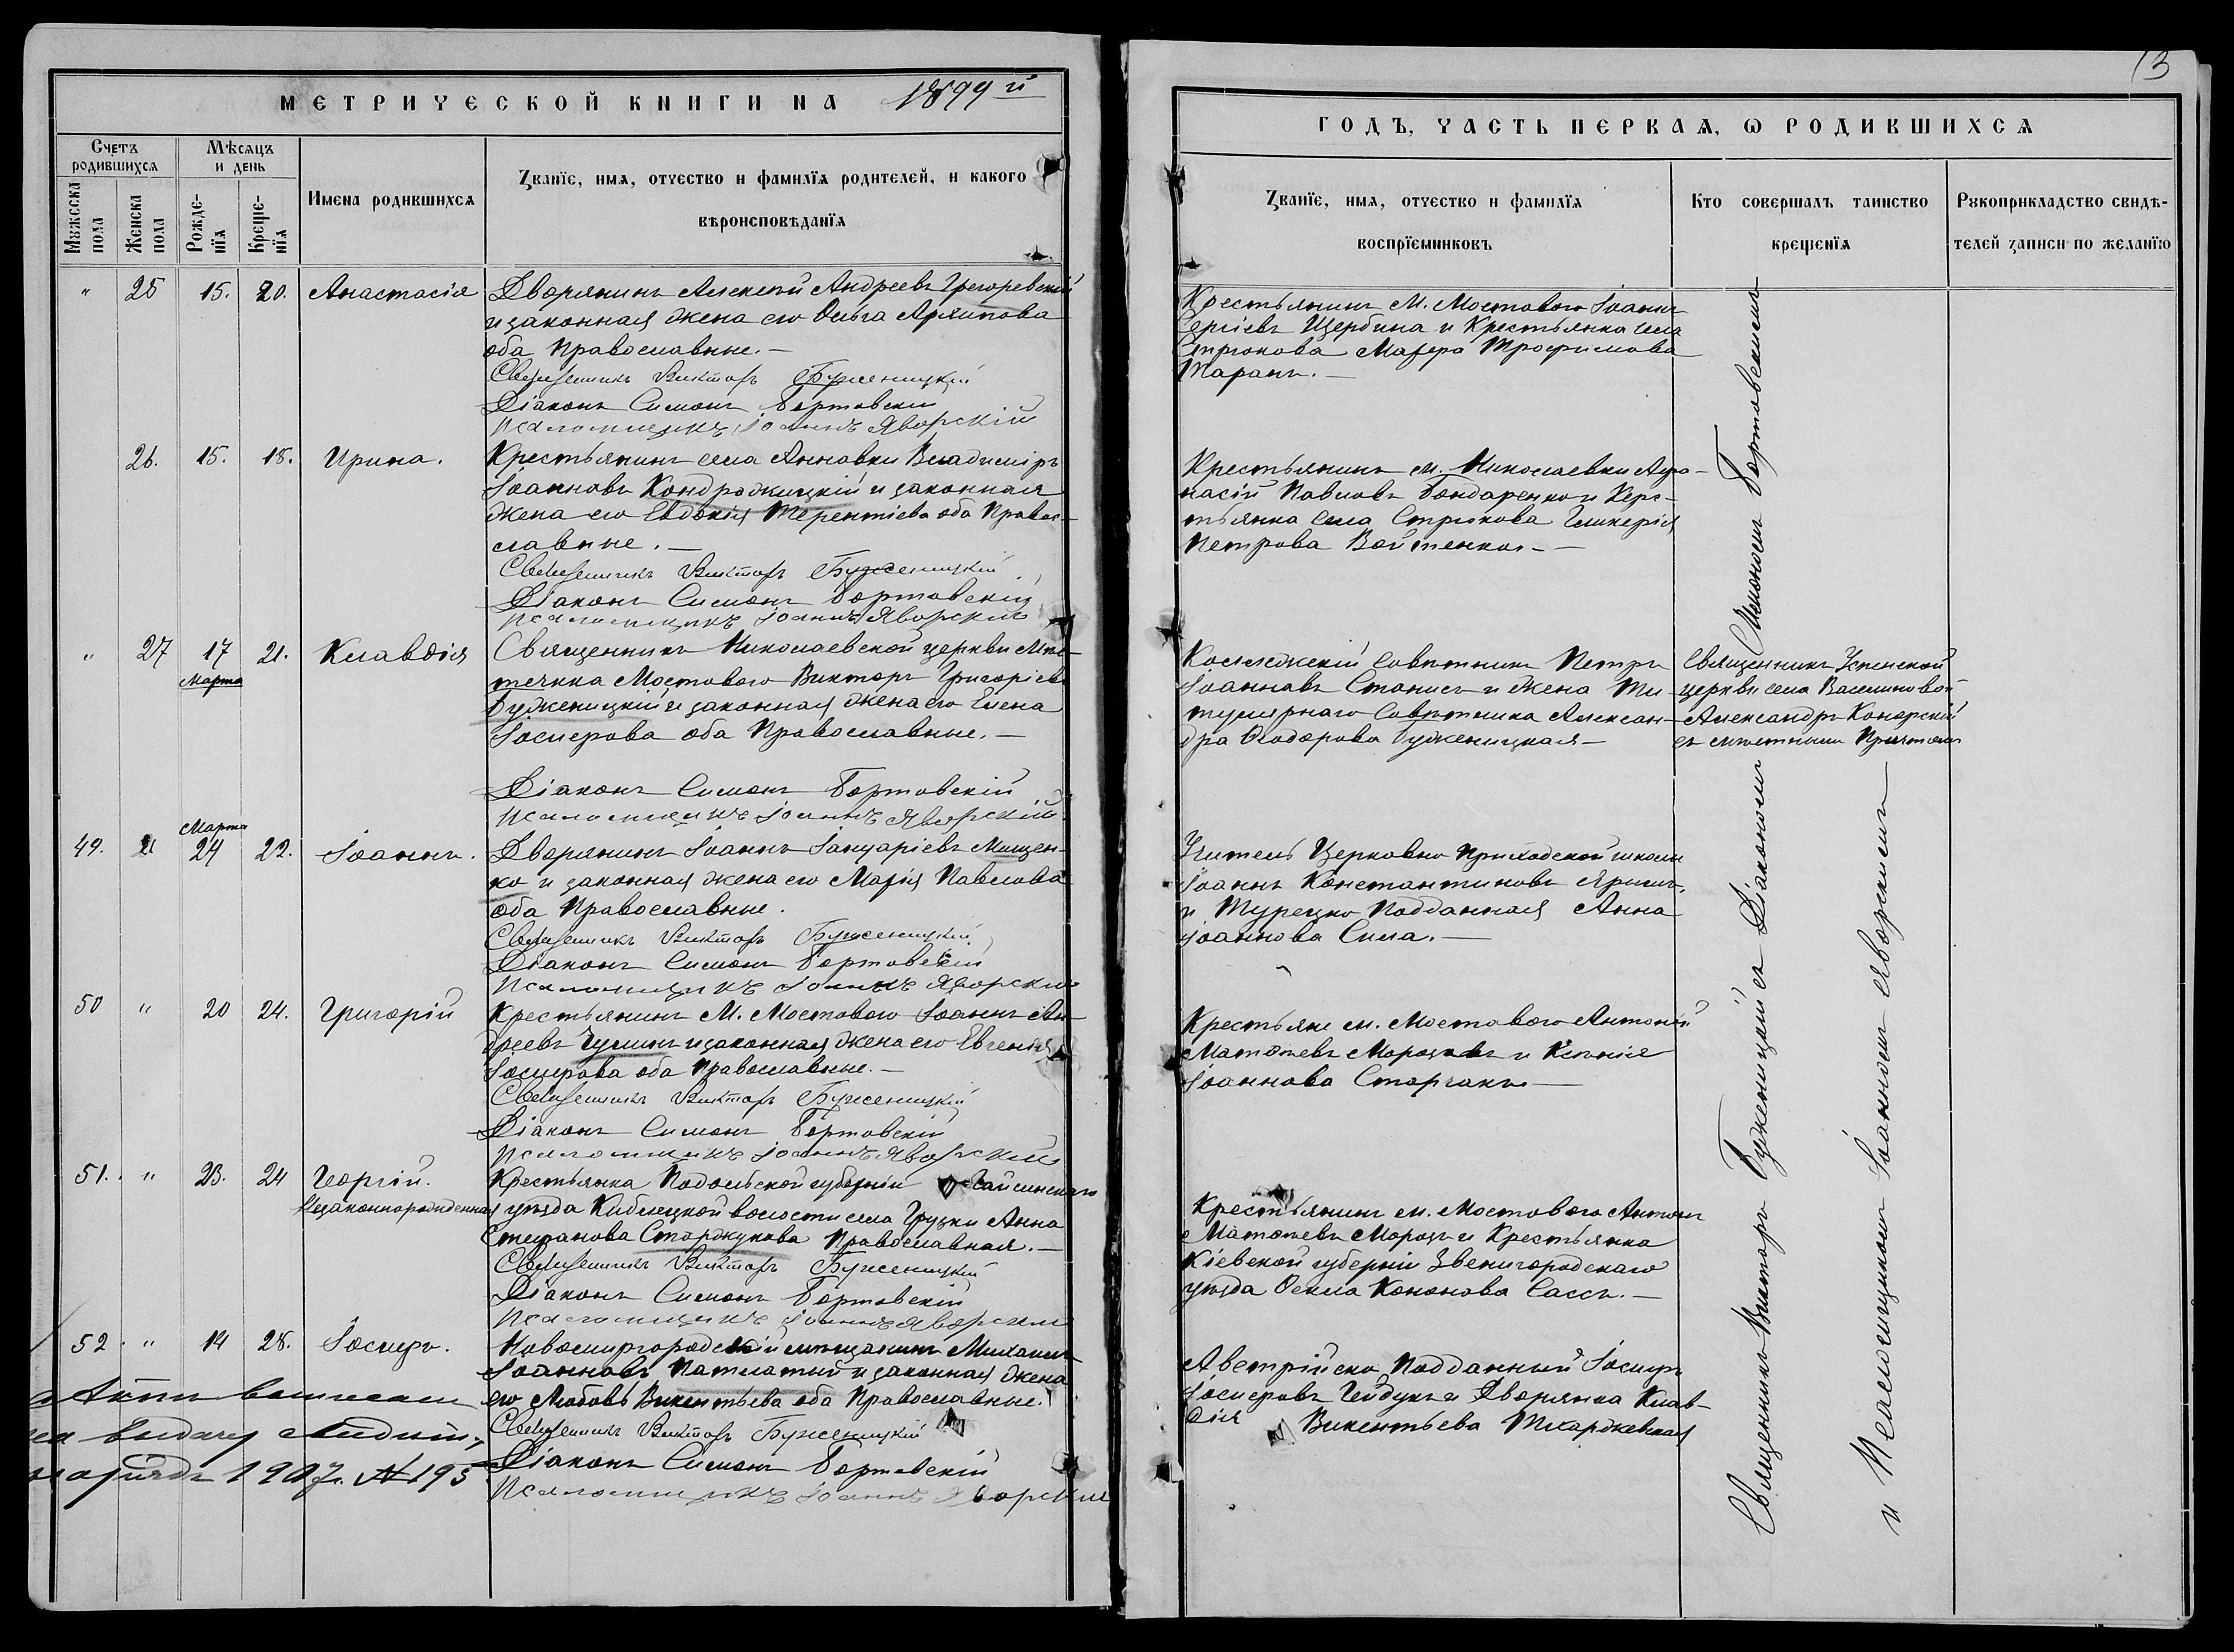 МЕТРИЧЕСКОЙ КНИГИ НА 1899й
Счетъ родившихся
Мѣсяцъ и день
Мужеска пола
Женска пола
Рожденїя
Крещенїя
Имена родившихся
Званїе, имя, отчество и фамилїя родителей, и какого
вѣроисповѣданїя
" 25 15. 20. Анастасія Дворянинъ Алексѣй Андреевъ Григоревскій
и законная жена его Ольга Архипова
оба Православные.—
Священникъ Викторъ Буженицкій
Діаконъ Симонъ Бортовскій
Псаломщикъ Іоаннъ Яворскій
26. 15. 18. Ирина. Крестьянинъ села Анновки Владиміръ
Іоанновъ Кондражицкій и законная
жена его Евдокія Терентіева оба Право-
славные.—
Священникъ Викторъ Буженицкій
Діаконъ Симонъ Бортовскій
Псаломщикъ Іоаннъ Яворскій
" 27 17 21. Клавдія Священникъ Николаевской церкви Мѣс-
Марта
течка Мостового Викторъ Григоріевъ
Буженицкій и законная жена его Елена
Іосифова оба Православные.—
Діаконъ Симонъ Бортовскій
Псаломщикъ Іоаннъ Яворскій
Марта
49. 24 22. Іоаннъ. Дворянинъ Іоаннъ Іануаріевъ Мищен-
ко и законная жена его Марія Павлова
оба Православные.
Священникъ Викторъ Буженицкій
Діаконъ Симонъ Бортовскій
Псаломщикъ Іоаннъ Яворскій
50 " 20 24. Григорій Крестьянинъ М. Мостового Іоаннъ Ан-
дреевъ и законная жена его Евгенія
Іосифова оба Православные.—
Священникъ Викторъ Буженицкій
Діаконъ Симонъ Бортовскій
Псаломщикъ Іоаннъ Яворскій
51. " 23. 24 Георгій. Крестьянка Подольской губерніи Гайсинскаго
Незаконнорожденная уѣзда Киблецкой волости села Грузки Анна
Стефанова Сторожукова Православная.—
Священникъ Викторъ Буженицкій
Діаконъ Симонъ Бортовскій
Псаломщикъ Іоаннъ Яворскій
52. " 14 28. Іосифъ. Новомиргородскій мѣщанинъ Михаилъ
Іоанновъ Патлатий и законная жена
его Любовь Викентьева оба Православные.
Священникъ Викторъ Буженицкій
Діаконъ Симонъ Бортовскій
Псаломщикъ Іоаннъ Яворскій
выдачу
1907 г. №195
13
ГОДЪ, ЧАСТЬ ПЕРВАЯ, Ѡ РОДИВШИХСЯ
Званїе, имя, отчество и фамилїя
воспрїемниковъ
Кто совершалъ таинство
крещенїя
Рукоприкладство свидѣ-
телей записи по желанїю
Крестьянинъ М. Мостового Іоаннъ
Сергіевъ Щербина и Крестьянка села
Стрюкова Мавра Трофимова
Таранъ.—
Крестьянинъ м. Николаевки Афа-
насій Павловъ Бондаренко и Крес-
тьянка села Стрюкова Гликерія
Петрова Войтенко.—
Коллежскій Совѣтникъ Петръ
Іоанновъ Станисъ и жена Ти-
тулярнаго Совѣтника Алексан-
дра Ѳеодорова Буженицкая—
Священникъ Успенской
церкви села Василиновой
Александръ Конарскій
съ мѣстнымъ Причтомъ
Учитель Церковно Приходской школы
Іоаннъ Константиновъ
и Турецко Подданная Анна
Іоаннова Сила.—
Крестьяне м. Мостового Антоній
Матѳіевъ Морозовъ и Ксенія
Іоаннова Старчакъ—
Крестьянинъ м. Мостового Антонъ
Матѳіевъ Морозъ и Крестьянка
Кіевской губерніи Звенигородскаго
уѣзда Ѳекла Кононова Сассъ.—
Австрійско Подданный Іосифъ
Іосифовъ Гейдукъ и Дворянка Клав-
дія Викентьева Ткаржевская
Священникъ Викторъ Буженицкій съ Діакономъ Симономъ Бортовскимъ
и Псаломщикомъ Іоанномъ Яворскимъ